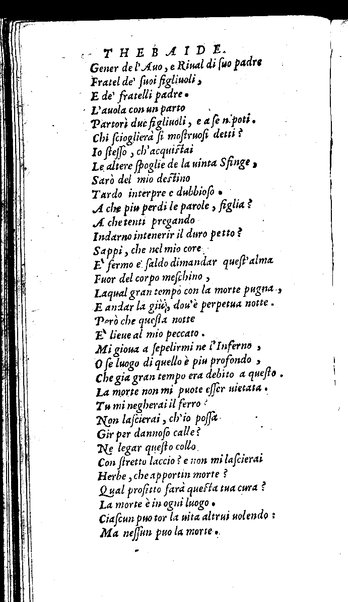 THEBAIDE.
Gener de l'Auo, e Riual di suo padre
Fratel de' suoi figliuoli,
E de' fratelli padre.
L'auola con un parto
Partorì due figliuoli, e a se nipoti.
Chi scioglierà si mostruosi detti?
Io stesso, ch'acquistai
Le altere spoglie de la uinta Sfinge,
Sarò del mio destino
Tardo interpre e dubbioso.
A che piu perdi le parole, figlia?
A che tenti pregando
Indarno intenerir il duro petto?
Sappi, che nel mio core
E' fermo e saldo dimandar quest'alma
Fuor del corpo meschino,
Laqual gran tempo con la morte pugna,
E andar la giù, dou'è perpetua notte.
Però che questa notte
E' lieue al mio peccato.
Mi gioua a sepelirmi ne l'Inferno,
O se luogo di quello è piu profondo,
Che gia gran tempo era debito a questo.
La morte non mi puote esser uietata.
Tu mi negherai il ferro?
Non lascierai, ch'io possa
Gir per dannoso calle?
Ne legar questo collo
Con stretto laccio? e non mi lascierai
Herbe, che apportin morte?
Qual profitto farà questa tua cura?
La morte è in ogni luogo.
Ciascun puo tor la uita altrui uolendo:
Ma nessun puo la morte.